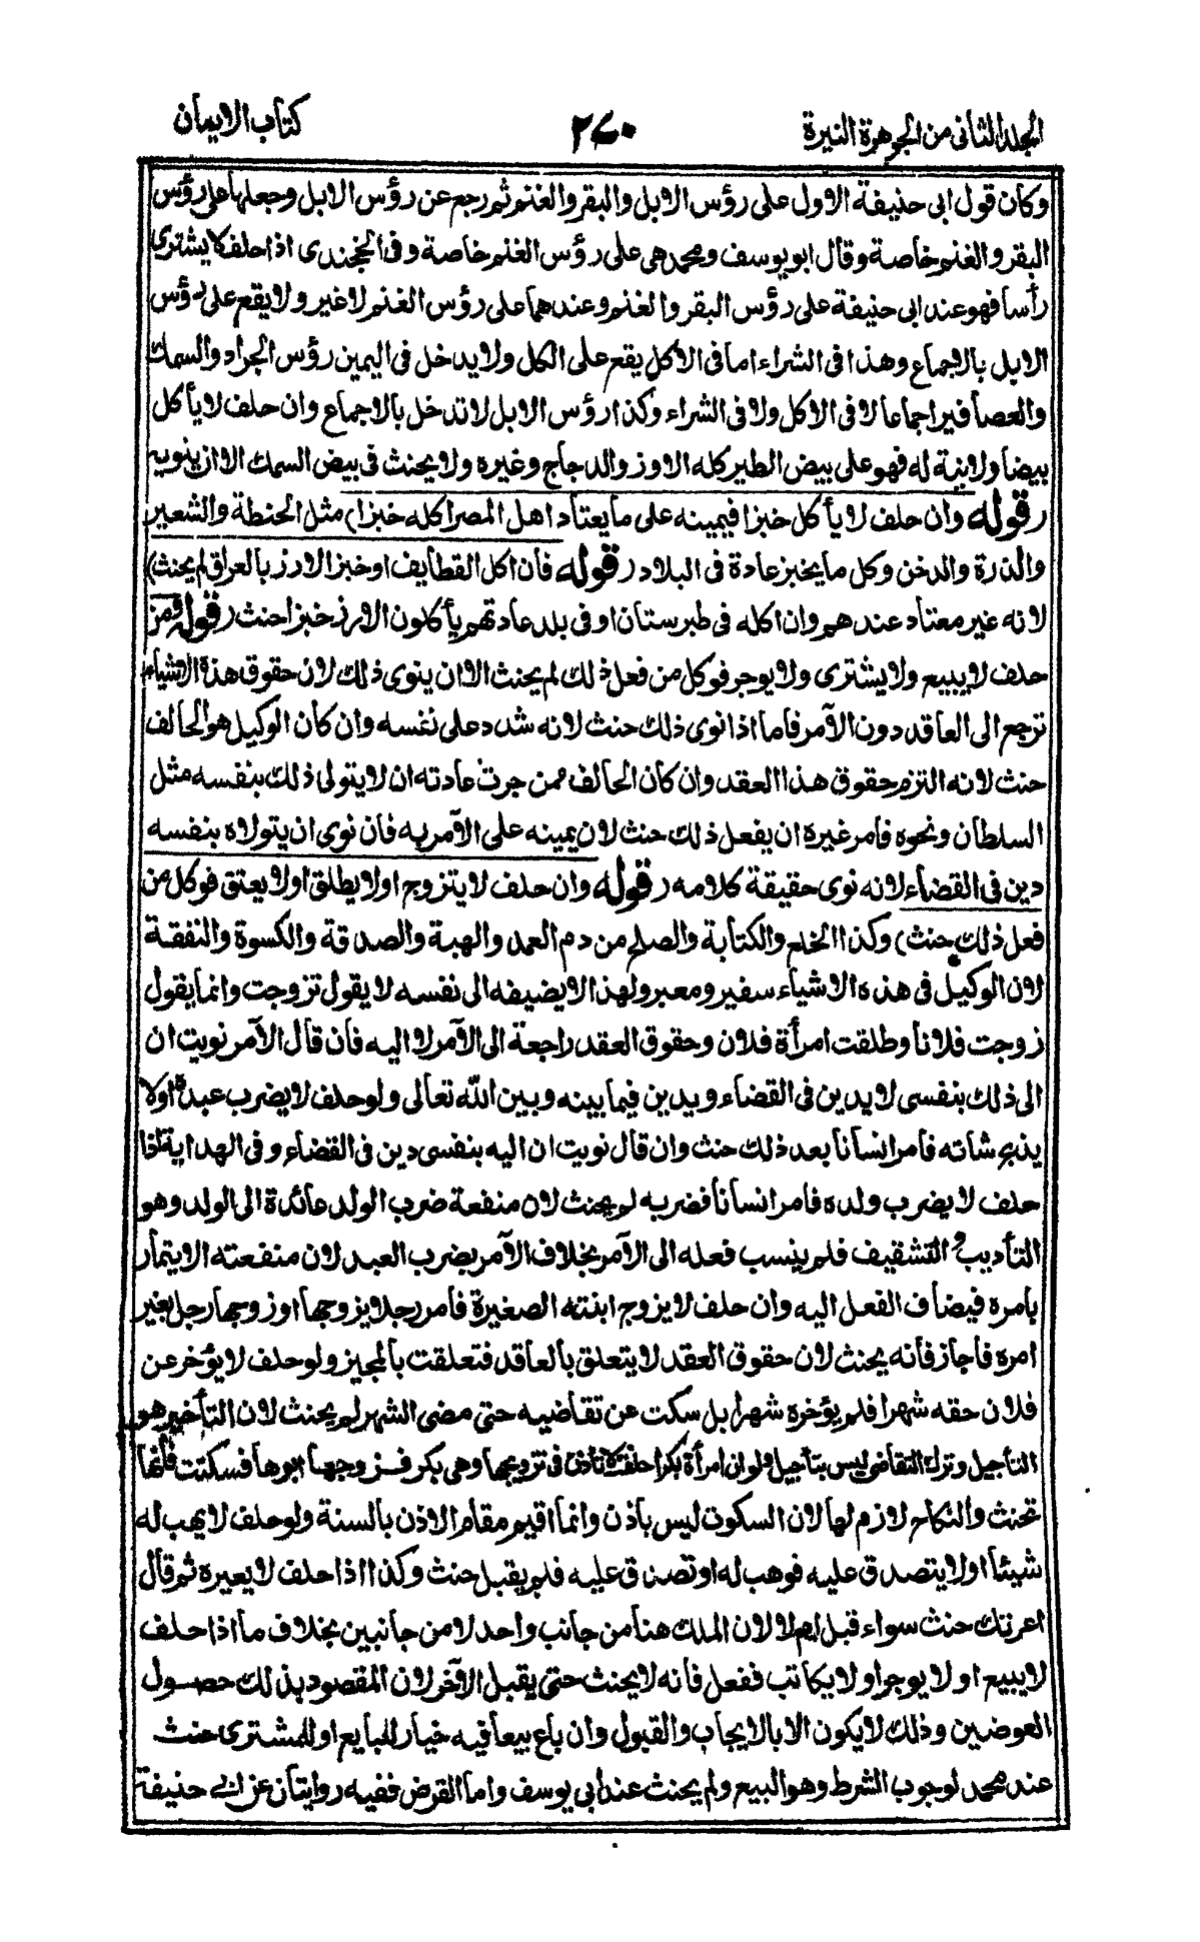 المجلد الثانى من الجوهرة النيرة ٢٧٠ كتاب الايمان
وكان قول ابى حنيفة الاول على رؤس الابل والبقر والغنم ثم رجع عن رؤس الابل وجعلها على رؤس
البقر والغنم خاصة وقال ابو يوسف ومحمد هى على رؤس الغنم خاصة وفى الخجندى اذا حلف لا يشترى
رأسا فهو عند ابى حنيفة على رؤس البقر والغنم وعندهما على رؤس الغنم لا غير ولا يقع على رؤس
الابل بالاجماع وهذا فى الشراء اما فى الاكل يقع على الكل ولا يدخل فى اليمين رؤس الجراد والسمك
والعصافير اجماعا لا فى الاكل ولا فى الشراء وكذا رؤس الابل لا تدخل بالاجماع وان حلف لا يأكل
بيضا ولا نية له فهو على بيض الطير كله الاوز والدجاج وغيره ولا يحنث فى بيض السمك الا ان ينويه
(قوله وان حلف لا يأكل خبزا فيمينه على ما يعتاد اهل المصر اكله خبزا) مثل الحنطة والشعير
والذرة والدخن وكل ما يخبز عادة فى البلاد (قوله فان اكل القطايف او خبز الارز بالعراق لم يحنث)
لانه غير معتاد عندهم وان اكله فى طبرستان او فى بلد عادتهم يأكلون الارز خبزا حنث (قوله ومن
حلف لا يبيع ولا يشترى ولا يوجر فوكل من فعل ذلك لم يحنث الا ان ينوى ذلك لان حقوق هذة الاشياء
ترجع الى العاقد دون الآمر فاما اذا نوى ذلك حنث لانه شدد على نفسه وان كان الوكيل هو الحالف
حنث لانه التزم حقوق هذا العقد وان كان الحالف ممن جرت عادته ان لا يتولى ذلك بنفسه مثل
السلطان ونحوه فامر غيرة ان يفعل ذلك حنث لان يمينه على الآمر به فان نوى ان يتولاه بنفسه
دين فى القضاء لانه نوى حقيقة كلامه (قوله وان حلف لا يتزوج او لا يطلق او لا يعتق فوكل من
فعل ذلك حنث) وكذا الخلع والكتابة والصلح من دم العمد والهبة والصدقة والكسوة والنفقة
لان الوكيل فى هذه الاشياء سفير ومعبر ولهذا لا يضيفه الى نفسه لا يقول تزوجت وانما يقول
زوجت فلانا وطلقت امرأة فلان وحقوق العقد راجعة الى الآمر لا اليه فان قال الآمر نويت ان
الى ذلك بنفسى لا يدين فى القضاء ويدين فيما بينه وبين الله تعالى ولو حلف لا يضرب عبدة او لا
يذبح شاته فامر انسانا بعد ذلك حنث وان قال نويت ان اليه بنفسى دين فى القضاء وفى الهداية اذا
حلف لا يضرب ولده فامر انسانا فضربه لم يحنث لان منفعة ضرب الولد عائدة الى الولد وهو
التأديب و التثقيف فلم ينسب فعله الى الآمر بخلاف الآمر بضرب العبد لان منفعته الايتمار
بامره فيضاف الفعل اليه وان حلف لا يزوج ابنته الصغيرة فامر رجلا يزوجها او زوجها رجل بغير
امره فاجاز فانه يحنث لان حقوق العقد لا يتعلق بالعاقد فتعلقت بالمجيز ولو حلف لا يؤخر عن
فلان حقه شهرا فلم يؤخره شهرا بل سكت عن تقاضيه حتى مضى الشهر لم يحنث لان التأخير هو
التأجيل وترك التقاضى ليس بتأجيل ولو ان امرأة بكرا حلفت لا تأذن فى تزويجها وهى بكر فزوجها ابوها فسكتت فانها
تحنث والنكاح لازم لها لان السكوت ليس باذن وانما اقيم مقام الاذن بالسنة ولو حلف لا يهب له
شيئا او لا يتصدق عليه فوهب له او تصدق عليه فلم يقبل حنث وكذا اذا حلف لا يعيره ثم قال
اعرتك حنث سواء قبل ام لا لان الملك هنا من جانب واحد لا من جانبين بخلاف ما اذا حلف
لا يبيع او لا يوجر او لا يكاتب ففعل فانه لا يحنث حتى يقبل الآخر لان المقصود بذلك حصول
العوضين وذلك لا يكون الا بالايجاب والقبول وان باع بيعا فيه خيار للبايع او للمشترى حنث
عند محمد لوجوب الشرط وهو البيع ولم يحنث عند ابى يوسف واما القرض ففيه روايتان عن ابى حنيفة